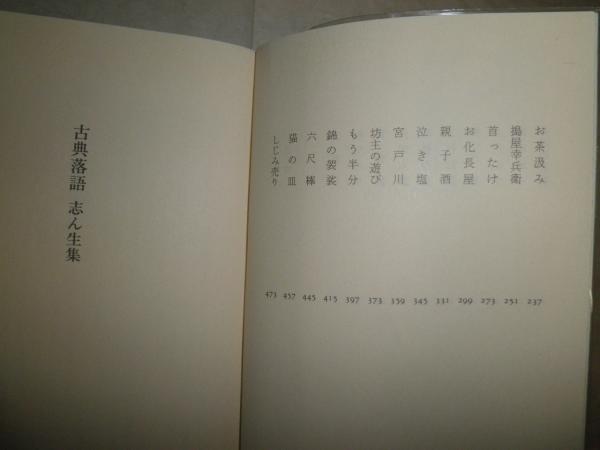 お茶汲み 237
搗屋幸兵衛 251
首ったけ 273
お化長屋 299
親子酒 331
泣き塩 345
宮戸川 359
坊主の遊び 373
もう半分 397
錦の袈裟 415
六尺棒 445
猫の皿 457
しじみ売り 473
古典落語 志ん生集